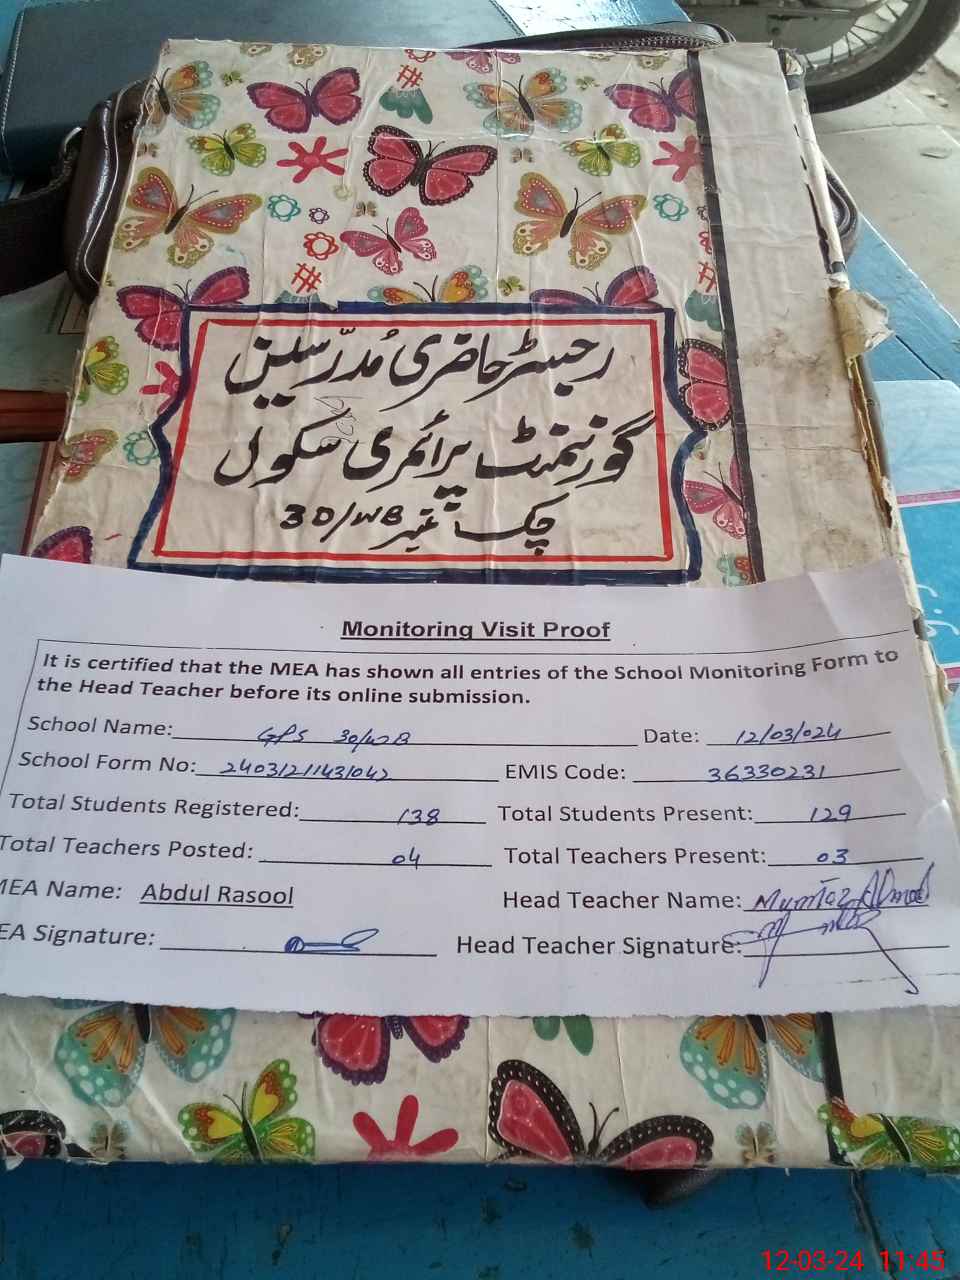 رجسٹر حاضری مُدرّسین
گورنمنٹ پرائمری سکول
چک نمبر 30/WB
Monitoring Visit Proof
It is certified that the MEA has shown all entries of the School Monitoring Form to
the Head Teacher before its online submission.
School Name: GPS 30/WB Date: 12/03/024
School Form No: 24031211431042 EMIS Code: 36330231
Total Students Registered: 138 Total Students Present: 129
Total Teachers Posted: 04 Total Teachers Present: 03
MEA Name: Abdul Rasool Head Teacher Name: Mumtaz Ahmad
EA Signature: Head Teacher Signature:
12-03-24 11:45